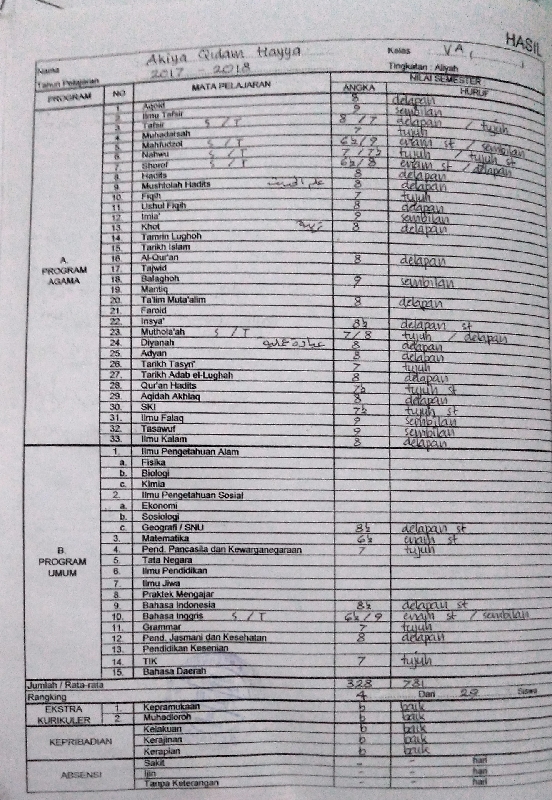 HASIL
Nama Akiya Qidam Hayya Kelas : V A,
Tahun Pelajaran 2017 - 2018 Tingkatan : Aliyah
PROGRAM NO MATA PELAJARAN NILAI SEMESTER
ANGKA HURUF
A. PROGRAM AGAMA
1. Aqoid 8 delapan
2. Ilmu Tafsir 9 sembilan
3. Tafsir S / T 8 / 7 delapan / tujuh
4. Muhadatsah 7 tujuh
5. Mahfudzol S / T 6½/9 enam st / sembilan
6. Nahwu S / T 7 / 7½ tujuh / tujuh st
7. Shorof S / T 6½/8 enam st / delapan
8. Hadits 8 delapan
9. Mushtolah Hadits علم الحديث 8 delapan
10. Fiqih 7 tujuh
11. Ushul Fiqih 8 delapan
12. Imla' 9 sembilan
13. Khot 8 delapan
14. Tamrin Lughoh
15. Tarikh Islam
16. Al-Qur'an 8 delapan
17. Tajwid
18. Balaghoh 9 sembilan
19. Mantiq
20. Ta'lim Muta'alim 8 delapan
21. Faroid
22. Insya' 8½ delapan st
23. Muthola'ah S / T 7/8 tujuh / delapan
24. Diyanah 8 delapan
25. Adyan 8 delapan
26. Tarikh Tasyri' 7 tujuh
27. Tarikh Adab el-Lughah 8 delapan
28. Qur'an Hadits 7½ tujuh st
29. Aqidah Akhlaq 8 delapan
30. SKI 7½ tujuh st
31. Ilmu Falaq 9 sembilan
32. Tasawuf 9 sembilan
33. Ilmu Kalam 8 delapan
B. PROGRAM UMUM
1. Ilmu Pengetahuan Alam
a. Fisika
b. Biologi
c. Kimia
2. Ilmu Pengetahuan Sosial
a. Ekonomi
b. Sosiologi
c. Geografi / SNU 8½ delapan st
3. Matematika 6½ enam st
4. Pend. Pancasila dan Kewarganegaraan 7 tujuh
5. Tata Negara
6. Ilmu Pendidikan
7. Ilmu Jiwa
8. Praktek Mengajar
9. Bahasa Indonesia 8½ delapan st
10. Bahasa Inggris S / T 6½ / 9 enam st / sembilan
11. Grammar 7 tujuh
12. Pend. Jasmani dan Kesehatan 8 delapan
13. Pendidikan Kesenian
14. TIK 7 tujuh
15. Bahasa Daerah
Jumlah / Rata-rata 328 781
Rangking 4 Dari 29 Siswa
EKSTRA KURIKULER 1. Kepramukaan b baik
2. Muhadloroh b baik
KEPRIBADIAN Kelakuan b baik
Kerajinan b baik
Kerapian b baik
ABSENSI Sakit - - hari
Ijin - - hari
Tanpa Keterangan - - hari